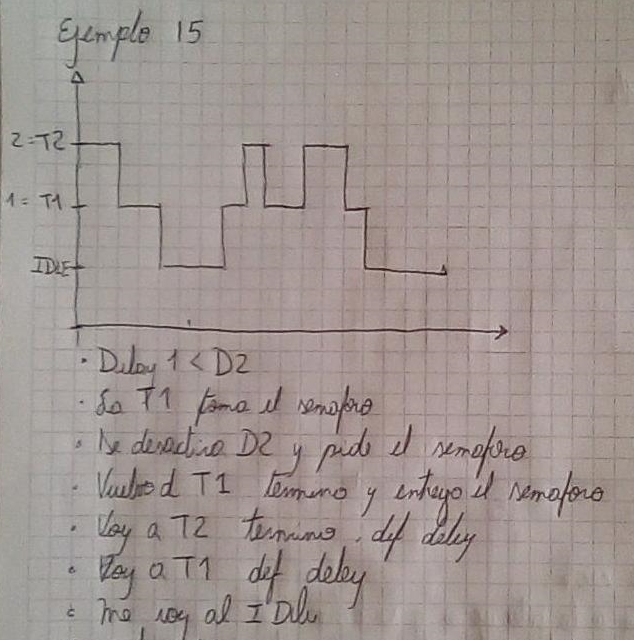 Ejemplo 15
2=T2
1=T1
IDLE
· Delay 1 < D2
· La T1 toma el semaforo
· Se desactiva D2 y pide el semaforo
· Vuelvo al T1 termino y entrego el semaforo
· Voy a T2 termino. def delay
· Voy a T1 def deley
· me voy al IDle